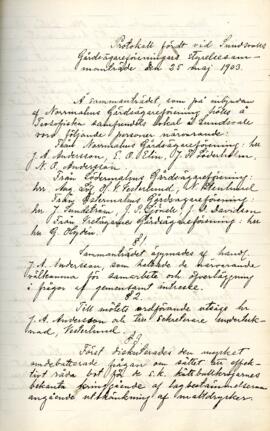 Protokoll fördt vid Sundsvalls
Gårdsägareföreningars styrelsesam-
manträde den 25 maj 1903.
Å sammanträdet, som på inbjudan
af Norrmalms Gårdsägareförening hölls å
Teosofiska samfundets lokal i Sundsvall
voro följande personer närvarande:
Från Norrmalms Gårdsägareförening: hrr
J. A. Andersson, E. O. Söderholm,
N. O. Andersson.
Från Södermalms Gårdsägareförening:
hrr Aug. O. V. Vesterlund, N.
Från Östermalms Gårdsägareförening:
hrr J. Sundström, J. P. J. A. Davidson
Från Gårdsägareförening:
hr G.
§ 1.
Sammanträdet öppnades af handl.
J. A. Andersson, som hälsade de närvarande
välkomna för samarbete och öfverläggning
i frågor af gemensamt intresse.
§ 2.
Till mötets ordförande utsågs hr
J. A. Andersson och till sekreterare underteck-
nad, Vesterlund.
§ 3.
Först diskuterades den mycket
omdebatterade frågan om sättet att effek-
tivt råda bot för de s.k.
bekanta kringgående af lagbestämmelserna
angående utskänkning af maltdrycker.